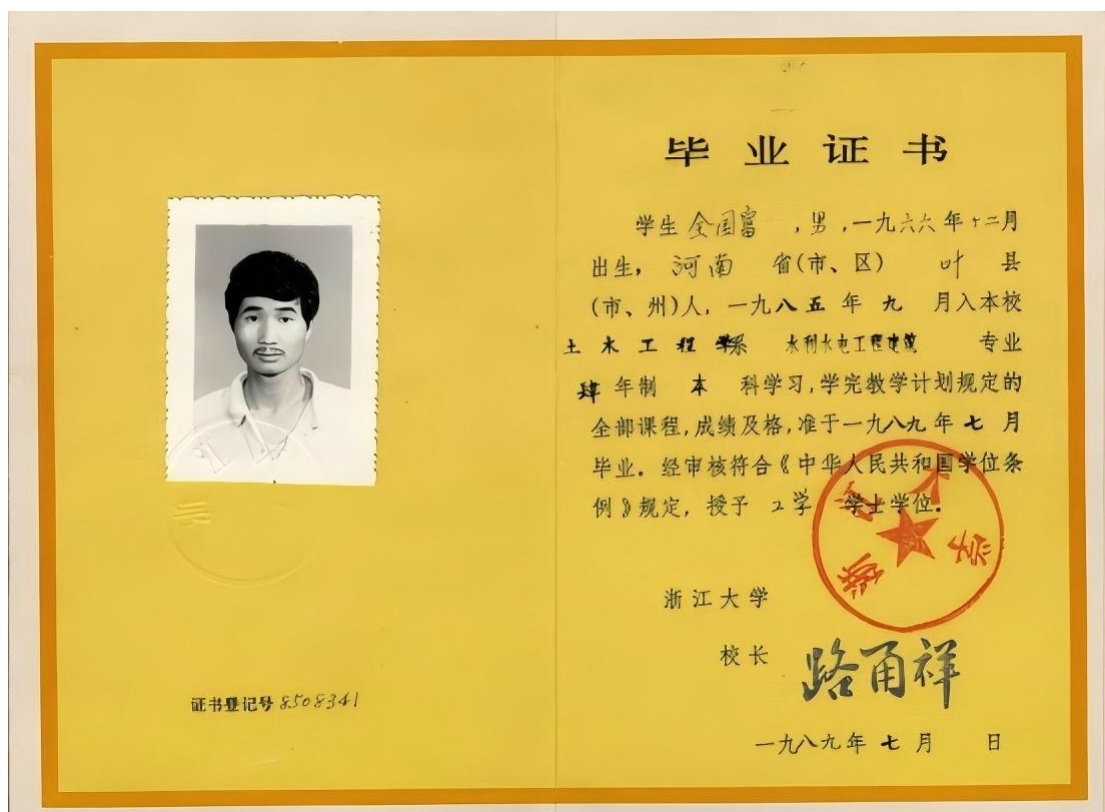 毕业证书
学生 全国富 ，男，一九六六年十二月
出生， 河南 省(市、区) 叶 县
(市、州)人，一九八五年 九 月入本校
土木工程学系 水利水电工程建筑 专业
肆年制 本 科学习，学完教学计划规定的
全部课程，成绩及格，准于一九八九年七月
毕业．经审核符合《中华人民共和国学位条
例》规定，授予 工学 学士学位．
浙江大学
浙江大学
校长 路甬祥
证书登记号 8508341
一九八九年 七 月 日